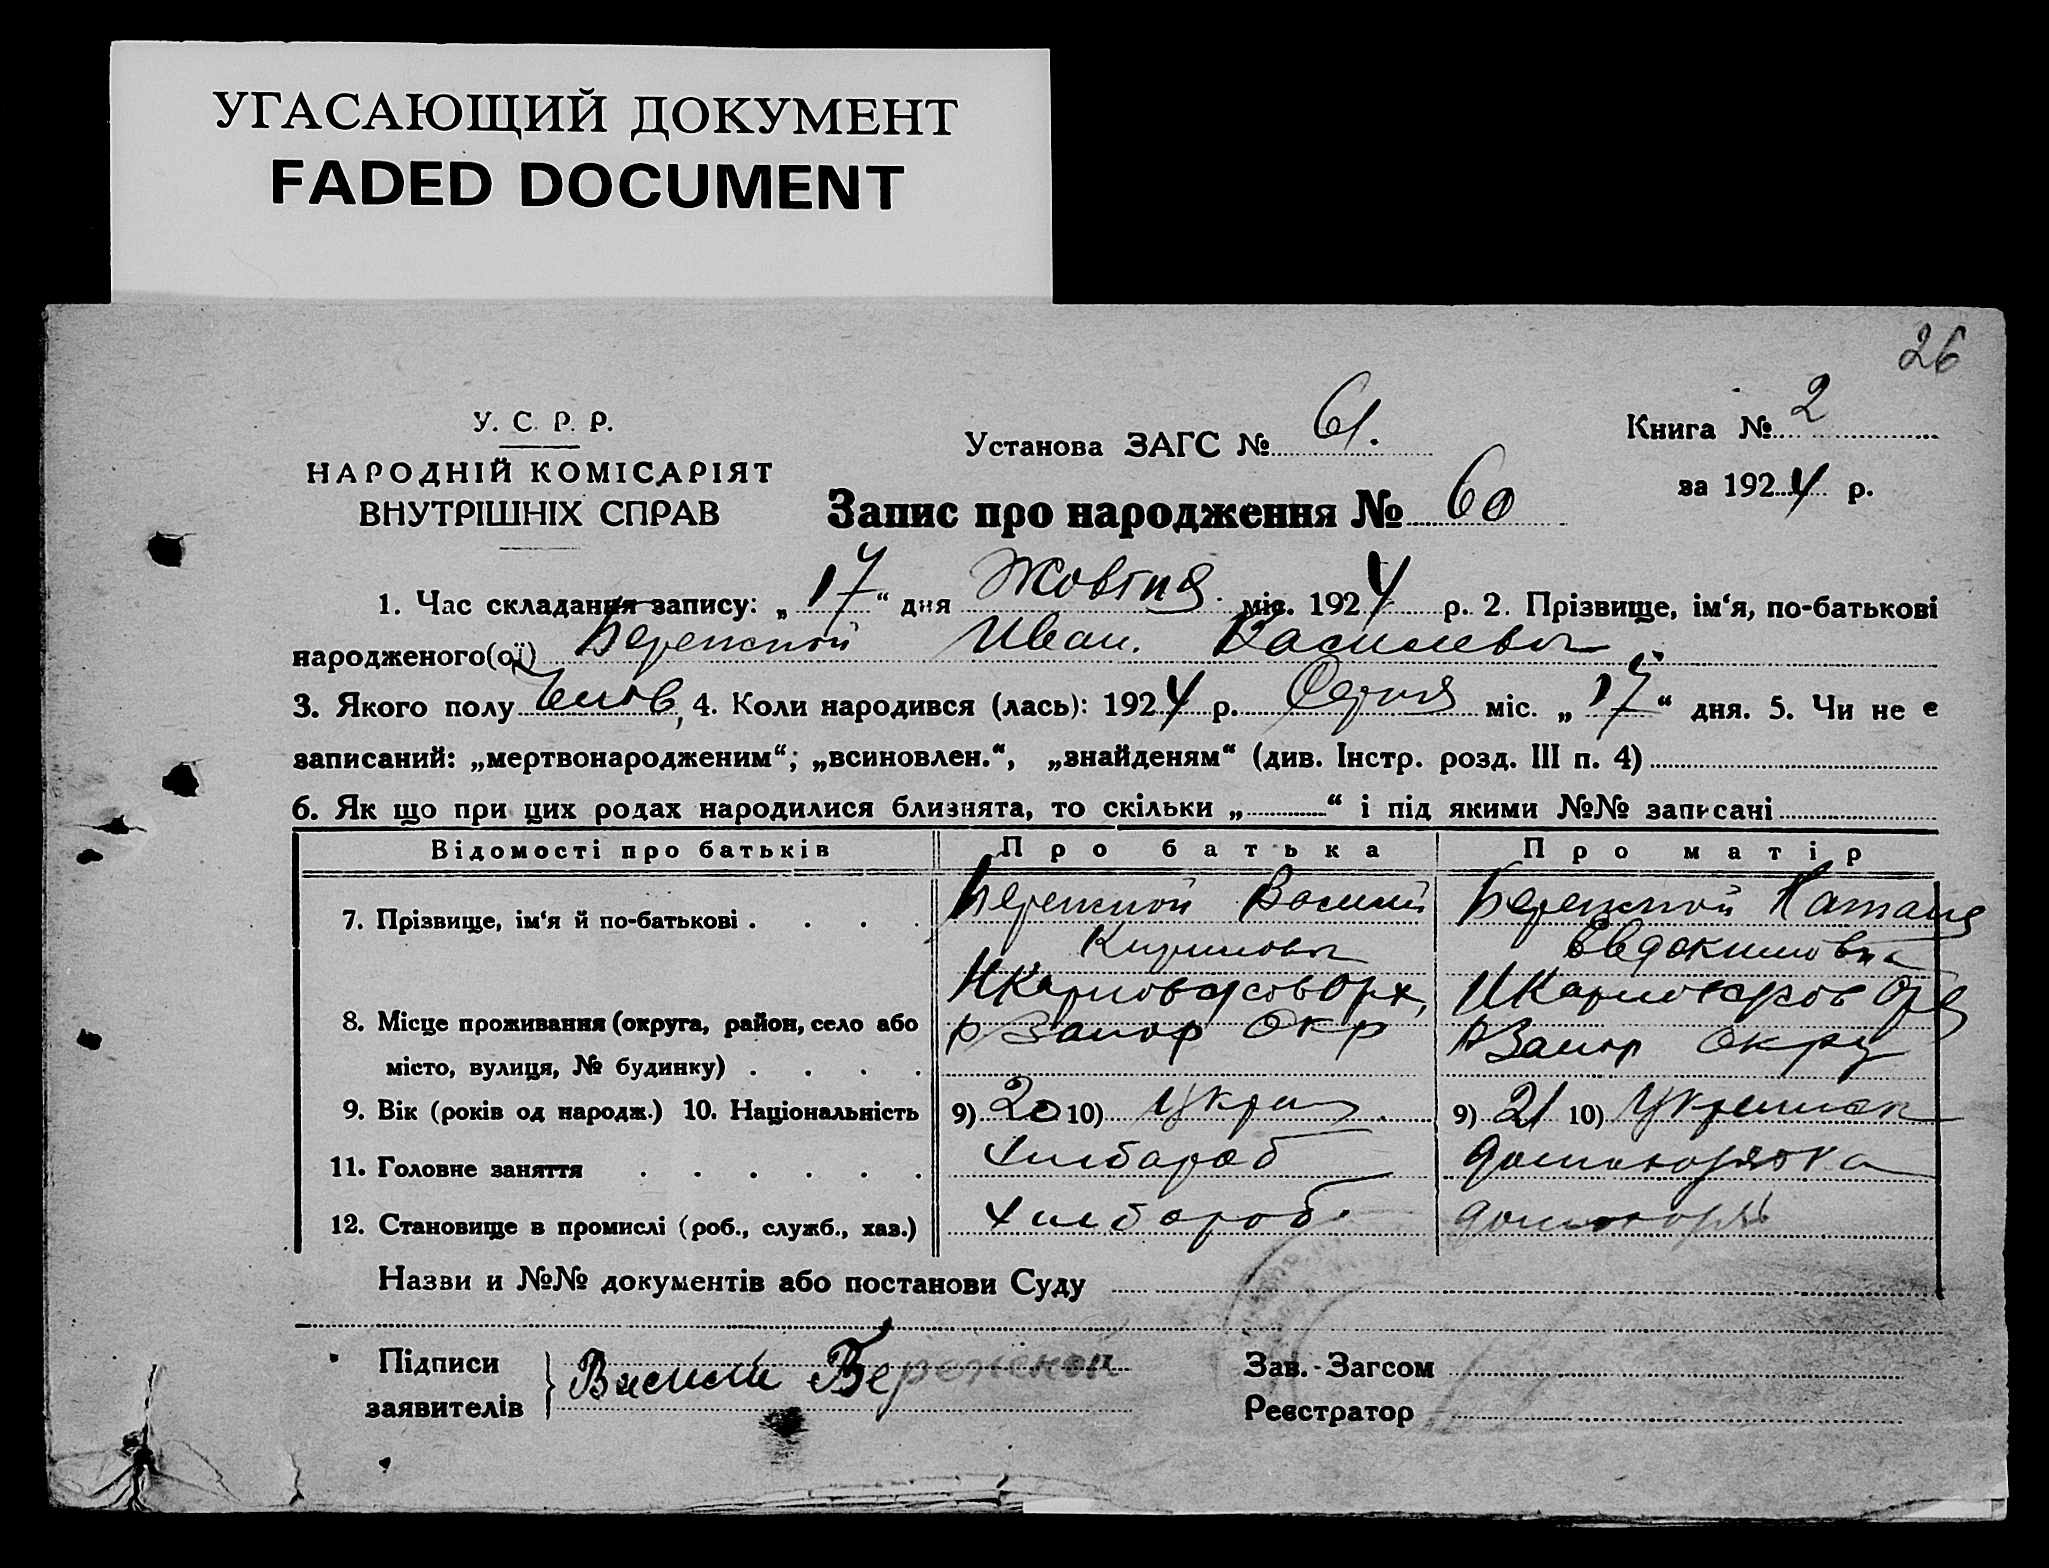 УГАСАЮЩИЙ ДОКУМЕНТ
FADED DOCUMENT
26
У. С. Р. Р.
НАРОДНІЙ КОМІСАРІЯТ
ВНУТРІШНІХ СПРАВ
Установа ЗАГС № 61.
Книга № 2
за 1924 р.
Запис про народження № 60
1. Час складання запису: „17“ дня Жовтня міс. 1924 р. 2. Прізвище, ім‘я, по-батькові
народженого(ої) Бережной Иван. Василевы
3. Якого полу Чолов, 4. Коли народився (лась): 1924 р. Серпня міс. „17“ дня. 5. Чи не є
записаний: „мертвонародженим“; „всиновлен.“, „знайденям“ (див. Інстр. розд. III п. 4)
6. Як що при цих родах народилися близнята, то скільки „ “ і під якими №№ записані
Відомості про батьків Про батька Про матір
7. Прізвище, ім‘я й по-батькові Бережной Василий Бережной Наталия
Кириловы Евдокимовна
8. Місце проживання (округа, район, село або
місто, вулиця, № будинку)
Р Запор Окр Р Запор Окру
9. Вік (років од народж.) 10. Національність 9) 20 10) Укра 9) 21 10) Украинск
11. Головне заняття Хлебароб домохорятка
12. Становище в промислі (роб., служб., хаз.) Хлебороб.
Назви и №№ документів або постанови Суду
Підписи
заявителів
Василй Бережной
Зав. Загсом
Реєстратор